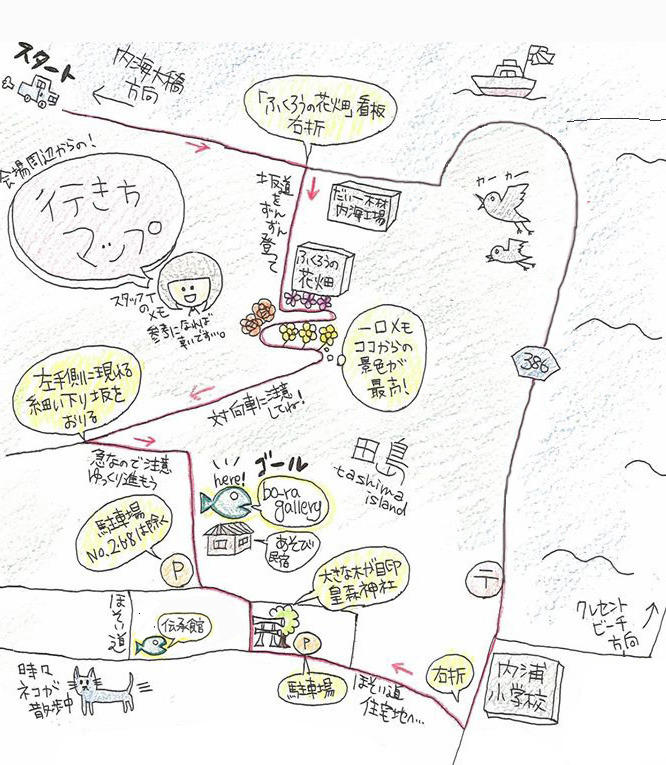 スタート
内海大橋
方向
「ふくろうの花畑」看板
右折
会場周辺からの!
行きち
マップ
スタッフTの
メモ
参考になれば
幸いです…。
坂道をずんずん登って
だいー木材
内海工場
ふくろうの
花畑
カーカー
一口メモ
ココからの
景色が
最高!
386
左手側に現れる
細い下り坂を
おりる
対向車に注意
してね!
急なので注意
ゆっくり進もう
田島
tashima
island
ゴール
here!
ba-ra
gallery
あそび
民宿
駐車場
No.2・6・8は除く
P
大きな木が目印
皇森神社
〒
クレセント
ビーチ
方向
ほそい道
伝承館
P
駐車場
時々
ネコが
散歩中
ほそい道
住宅地へ…
右折
内浦
小学校